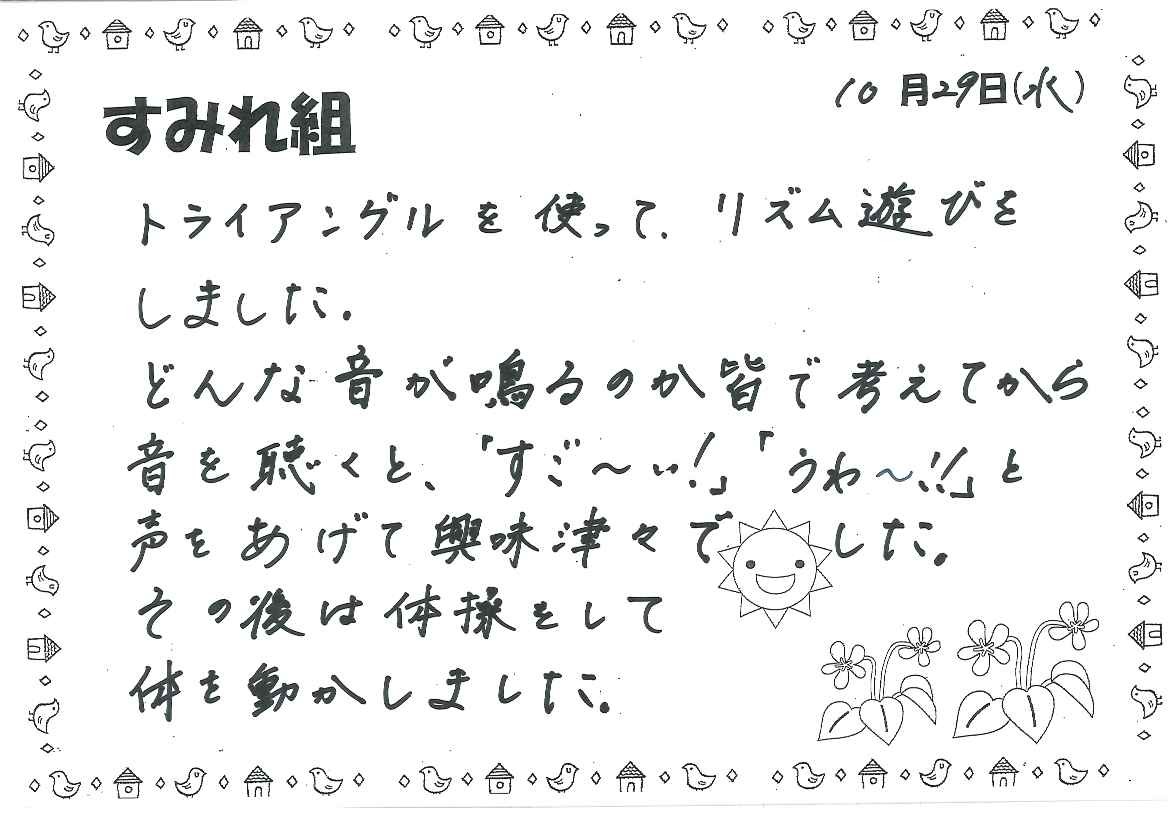 すみれ組
10月29日(水)
トライアングルを使って、リズム遊びを
しました。
どんな音が鳴るのか皆で考えてから
音を聴くと、「すご〜ぃ!」「うわ〜!!」と
声をあげて興味津々でした。
その後は体操をして
体を動かしました。